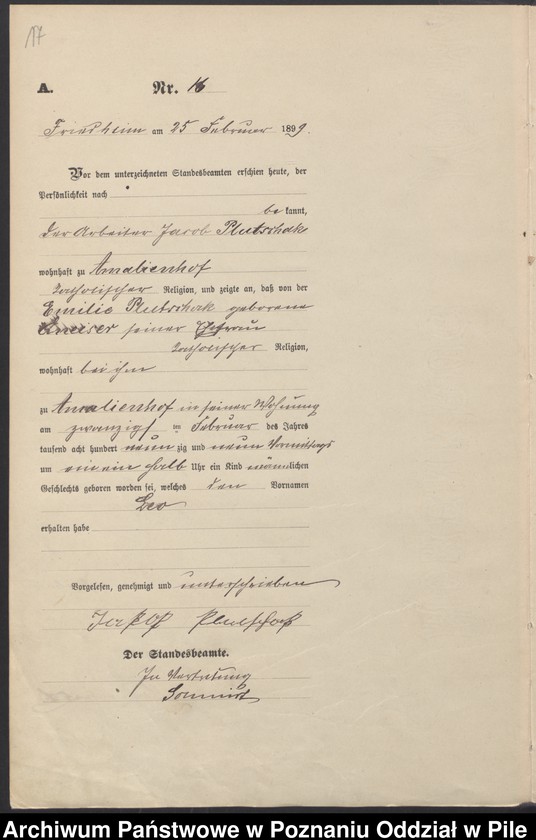 17
A. Nr. 16
Friedheim am 25 Februar 1899.
Vor dem unterzeichneten Standesbeamten erschien heute, der
Persönlichkeit nach
be kannt,
der Arbeiter Jacob Plutschak
wohnhaft zu Amalienhof
katholischer Religion, und zeigte an, daß von der
Emilie Plutschak geborene
seiner Ehefrau
katholischer Religion,
wohnhaft bei ihm
zu Amalienhof in seiner Wohnung
am zwanzigst en Februar des Jahres
tausend acht hundert neun zig und neun Vormittags
um ein ein halb Uhr ein Kind männlichen
Geschlechts geboren worden sei, welches den Vornamen
Leo
erhalten habe
Vorgelesen, genehmigt und unterschrieben
Jakob Plutschak
Der Standesbeamte.
In Vertretung
Archiwum Państwowe w Poznaniu Oddział w Pile